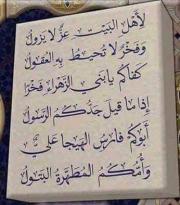 لِأَهْلِ البَيْتِ عِزٌّ لَا يَزُولُ
وَفَخْرٌ لَا تُحِيطُ بِهِ العُقُولُ
كَفَاكُمْ يَابَنِي الزَّهْرَاءِ فَخْرًا
إِذَا مَا قِيلَ جَدُّكُمُ الرَّسُولُ
أَبُوكُمْ فَارِسُ الهَيْجَا عَلِيٌّ
وَأُمُّكُمُ المُطَهَّرَةُ البَتُولُ